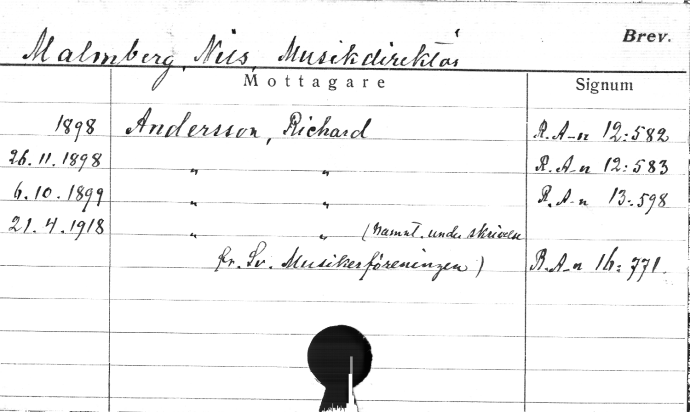 Brev.
Malmberg, Nils, Musikdirektör
Mottagare Signum
1898 Andersson, Richard R.A-n 12:582
26.11.1898 " " R.A-n 12:583
6.10.1899 " " R.A-n 13:598
21.4.1918 " " (namnt. under skrivelse
fr. Sv. Musikerföreningen) R.A-n 16:771.